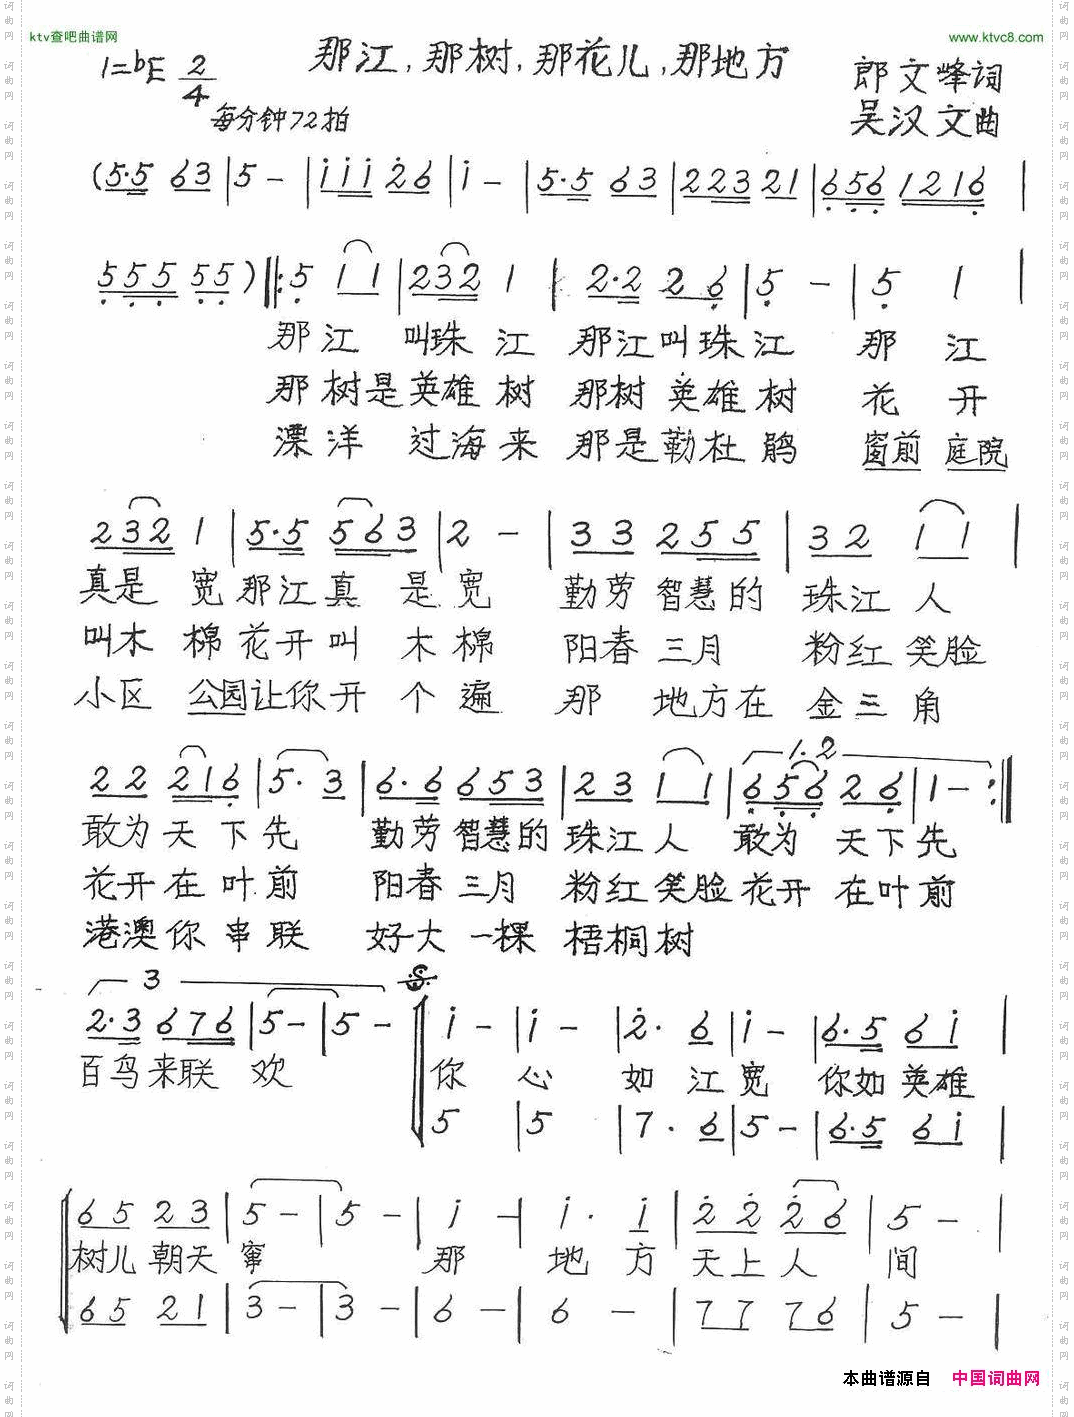 ktv查吧曲谱网
www.ktvc8.com
那江,那树,那花儿,那地方
1=bE 2/4
每分钟72拍
郎文峰词
吴汉文曲
(5·5 63 | 5 - | i i i 2 6 | i - | 5·5 63 | 223 21 | 656 1216 |
555 55) ‖: 5 1 1 | 232 1 | 2·2 2 6 | 5 - | 5 1 |
那江 叫珠江 那江叫珠江 那江
那树是英雄树 那树英雄树 花开
漂洋过海来 那是勒杜鹃 窗前庭院
232 1 | 5·5 563 | 2 - | 33 255 | 32 1 1 |
真是宽那江真是宽 勤劳智慧的珠江人
叫木棉花开叫木棉 阳春三月 粉红笑脸
小区公园让你开个遍 那地方在金三角
1.2
22 216 | 5·3 | 6·6 653 | 23 1 1 | 656 26 | 1 - :‖
敢为天下先 勤劳智慧的珠江人 敢为天下先
花开在叶前 阳春三月 粉红笑脸花开在叶前
港澳你串联 好大一棵梧桐树
3
2·3 676 | 5 - | 5 - | i - | i - | 2· 6 | i - | 6·5 6i |
百鸟来联欢 你心如江宽 你如英雄
5 | 5 | 7· 6 | 5 - | 6·5 6i |
65 23 | 5 - | 5 - | i - | i· i | 2 2 2 6 | 5 - |
树儿朝天窜 那地方天上人间
65 21 | 3 - | 3 - | 6 - | 6 - | 77 76 | 5 - |
本曲谱源自 中国词曲网